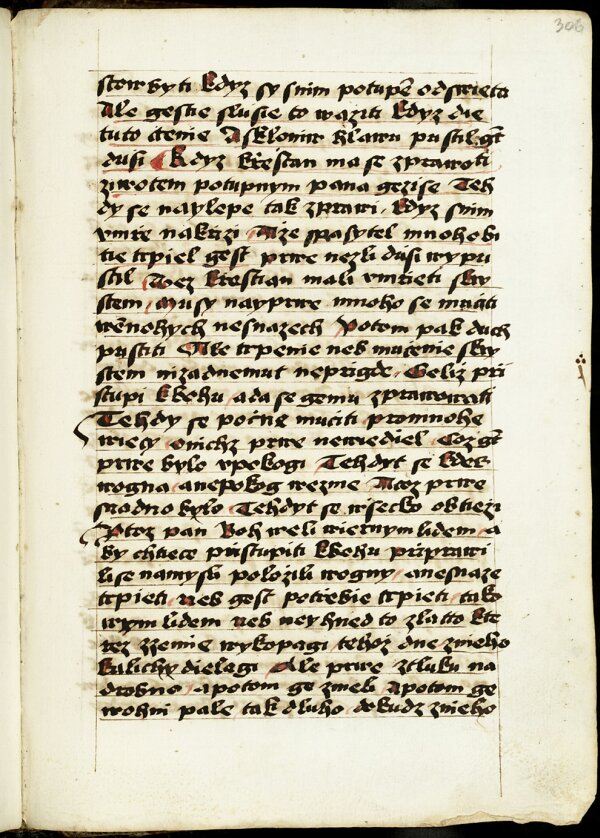 306
stow byti kdyz sy snim potupē odswieta
Ale gestie slusie to waziti kdyz die
tuto ctenie A skloniw hlawu pustil gt
dusi Kdyz krestan ma se zprawiti
ziwotem potupnym pana gezise Teh
dy se naylepe tak zprawi kdyz snim
vmre nakrizi A ze spasytel mnoho bi
tie trpiel gest prwe nezli dusi wypu
stil Toez krestian mali vmrieti skry
stem musy nayprwe mnoho se muciti
wēnohych nesnazech Potom pak duch
pustiti Ale trpenie neb mucenie skry
stem nizadnemut neprigde Geliz pri
stupi kbohu a da se gemu zprawowati
Tehdy se pocne muciti promnohe
wiecy onichz prwe newiediel Coz gt
prwe bylo vpokogi Tehdyt se kdes
wogna a nepokog wezme A coz prwe
snadno bylo Tehdyt se wsecko obtiezi
Protoz pan Boh weli wiernym lidem a
by chtiece pristupiti kbohu priprawi
li se namysli polozili wogny a nesnaze
trpieti Neb gest potrebie trpieti tako
wym lidem Neb neyhned to zlatto kte
rez zzemie wykopagi tehoz dne zneho
kalichy dielagi Ale prwe ztluku na
drobno a potom ge zmeli a potom ge
wohni pale tak dluho dokudz zneho